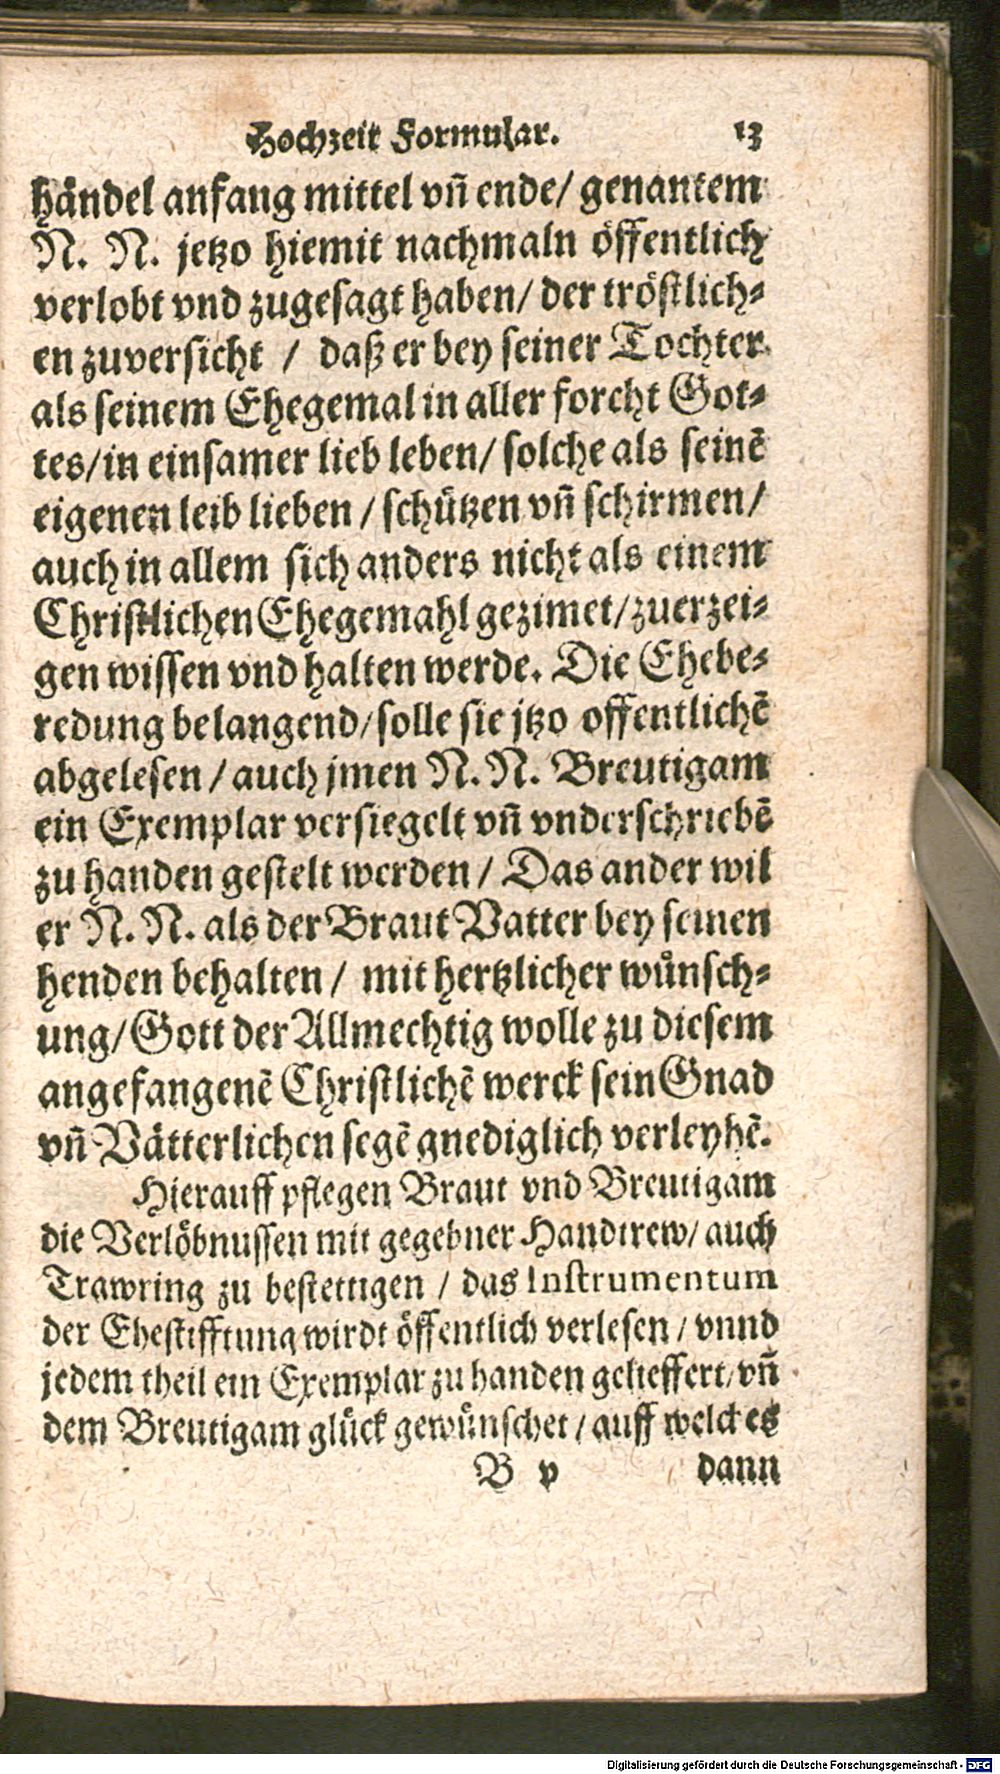 Hochzeit Formular. 13
händel anfang mittel vñ ende/ genantem
N. N. jetzo hiemit nachmaln öffentlich
verlobt vnd zugesagt haben/ der tröstlich⸗
en zuversicht / daß er bey seiner Tochter
als seinem Ehegemal in aller forcht Got⸗
tes/ in einsamer lieb leben/ solche als seinẽ
eigenen leib lieben / schützen vñ schirmen/
auch in allem sich anders nicht als einem
Christlichen Ehegemahl gezimet/ zuerzei⸗
gen wissen vnd halten werde. Die Ehebe⸗
redung belangend/ solle sie jtzo offentlichẽ
abgelesen / auch jmen N. N. Breutigam
ein Exemplar versiegelt vñ vnderschriebẽ
zu handen gestelt werden / Das ander wil
er N. N. als der Braut Vatter bey seinen
henden behalten / mit hertzlicher wůnsch⸗
ung/ Gott der Allmechtig wolle zu diesem
angefangenẽ Christlichẽ werck sein Gnad
vñ Vätterlichen segẽ gnediglich verleyhẽ.
Hierauff pflegen Braut vnd Breutigam
die Verlöbnussen mit gegebner Handtrew/ auch
Trawring zu bestettigen / das Instrumentum
der Ehestifftung wirdt öffentlich verlesen / vnnd
jedem theil ein Exemplar zu handen gelieffert/ vñ
dem Breutigam glück gewünschet / auff welches
B v dann
Digitalisierung gefördert durch die Deutsche Forschungsgemeinschaft - DFG